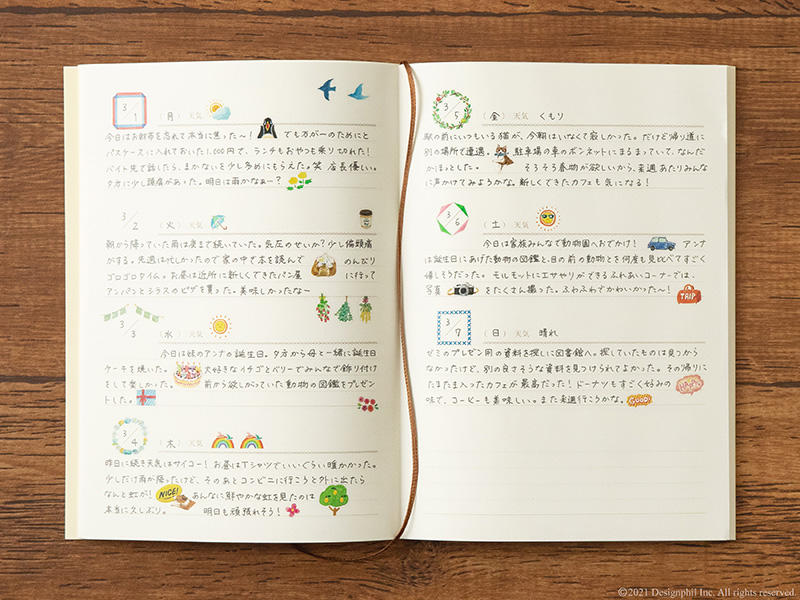 3/1 (月) 天気
今日はお財布を忘れて本当に焦った〜! でも万が一のためにと
パスケースに入れておいた1,000円で、ランチもおやつも乗り切れた!
バイト先で話したら、まかないを少し多めにもらえた。笑 店長優しい。
夕方に少し頭痛があった。明日は雨かなぁー?
3/2 (火) 天気
朝から降っていた雨は夜まで続いていた。気圧のせいか?少し偏頭痛
がする。先週は忙しかったので家の中で本を読んで のんびり
ゴロゴロタイム。お昼は近所に新しくできたパン屋 に行って
アンパンとシラスのピザを買った。美味しかったなー
3/3 (水) 天気
今日は妹のアンナの誕生日。夕方から母と一緒に誕生日
ケーキを焼いた。 大好きなイチゴとベリーでみんなで飾り付け
をして楽しかった。 前から欲しがっていた動物の図鑑をプレゼン
トした。
3/4 (木) 天気
昨日に続き天気はサイコー! お昼はTシャツでいいぐらい暖かかった。
少しだけ雨が降ったけど、そのあとコンビニに行こうと外に出たら
なんと虹が! NICE! あんなに鮮やかな虹を見たのは
本当に久しぶり。 明日も頑張れそう!
3/5 (金) 天気 くもり
駅の前にいつもいる猫が、今朝はいなくて寂しかった。だけど帰り道に
別の場所で遭遇。 駐車場の車のボンネットにまるまっていて、なんだ
かほっとした。 そろそろ春物が欲しいから、来週あたりみんな
に声かけてみようかな。新しくできたカフェも気になる!
3/6 (土) 天気
今日は家族みんなで動物園へおでかけ! アンナ
は誕生日にあげた動物の図鑑と目の前の動物とを何度も見比べてすごく
嬉しそうだった。モルモットにエサやりができるふれあいコーナーでは、
写真 をたくさん撮った。ふわふわでかわいかった〜! TRIP
3/7 (日) 天気 晴れ
ゼミのプレゼン用の資料を探しに図書館へ。探していたものは見つから
なかったけど、別の良さそうな資料を見つけられてよかった。その帰りに
たまたま入ったカフェが最高だった!ドーナツもすごく好みの
味で、コーヒーも美味しい。また来週行こうかな。 GOOD!
©2021 Designphil Inc. All rights reserved.